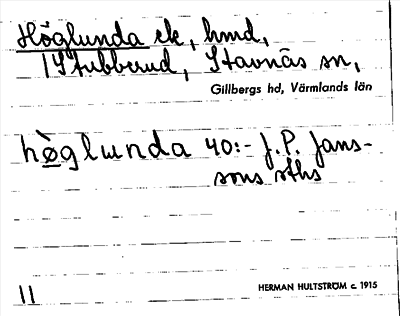 Höglunda ek, hmd,
I Stubberud, Stavnäs sn,
Gillbergs hd, Värmlands län
hö̀glunda 40:- J.P. Jans-
sons sths
11
HERMAN HULTSTRÖM c. 1915